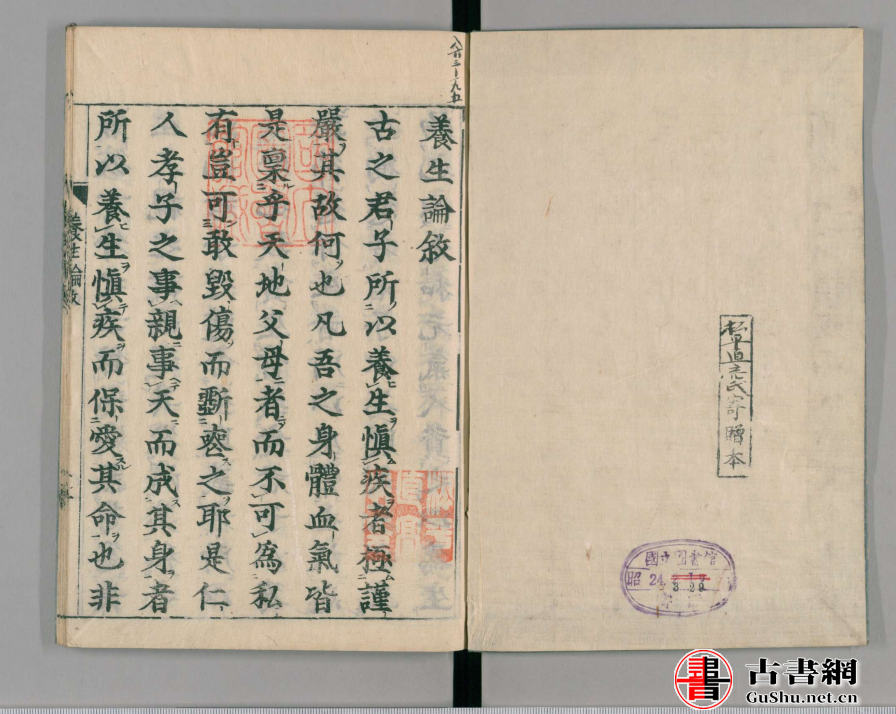 養生論敘
古之君子所以養生愼疾者極謹
嚴其故何也凡吾之身體血氣皆
是稟乎天地父母者而不可為私
有豈可敢毀傷而斲喪之耶是仁
人孝子之事親事天而成其身者
所以養生愼疾而保愛其命也非
養生論敘
寄贈本
國立図書館
昭24.
3.29
古書網
GuShu.net.cn